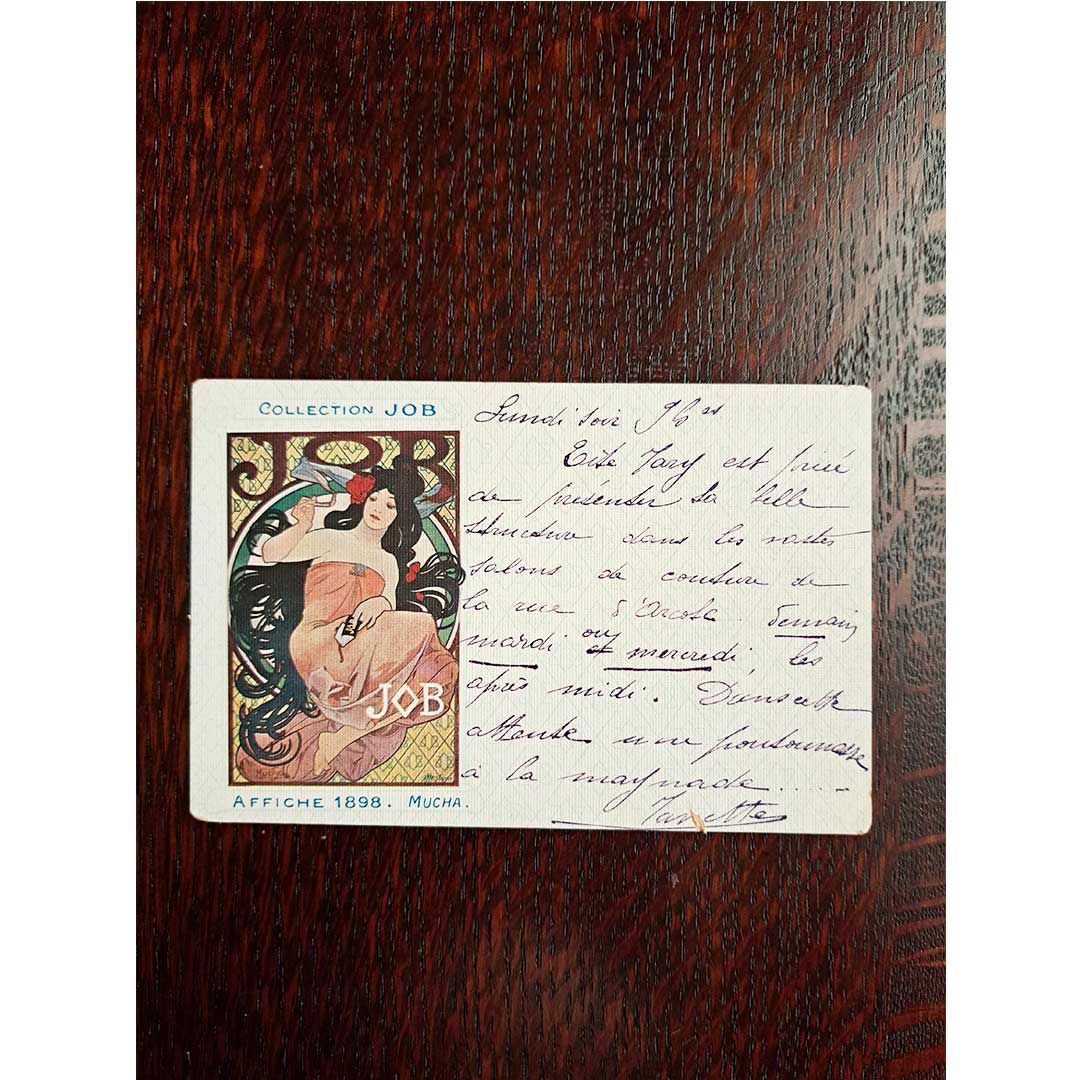 COLLECTION JOB
JOB
JOB
AFFICHE 1898. MUCHA.
Lundi soir 9h
est priée
de présenter sa belle
structure dans les vastes
salons de couture de
la rue d'Arcole. demain
mardi ou et mercredi, les
après midi. Dans cette
attente une
à la maynade.....